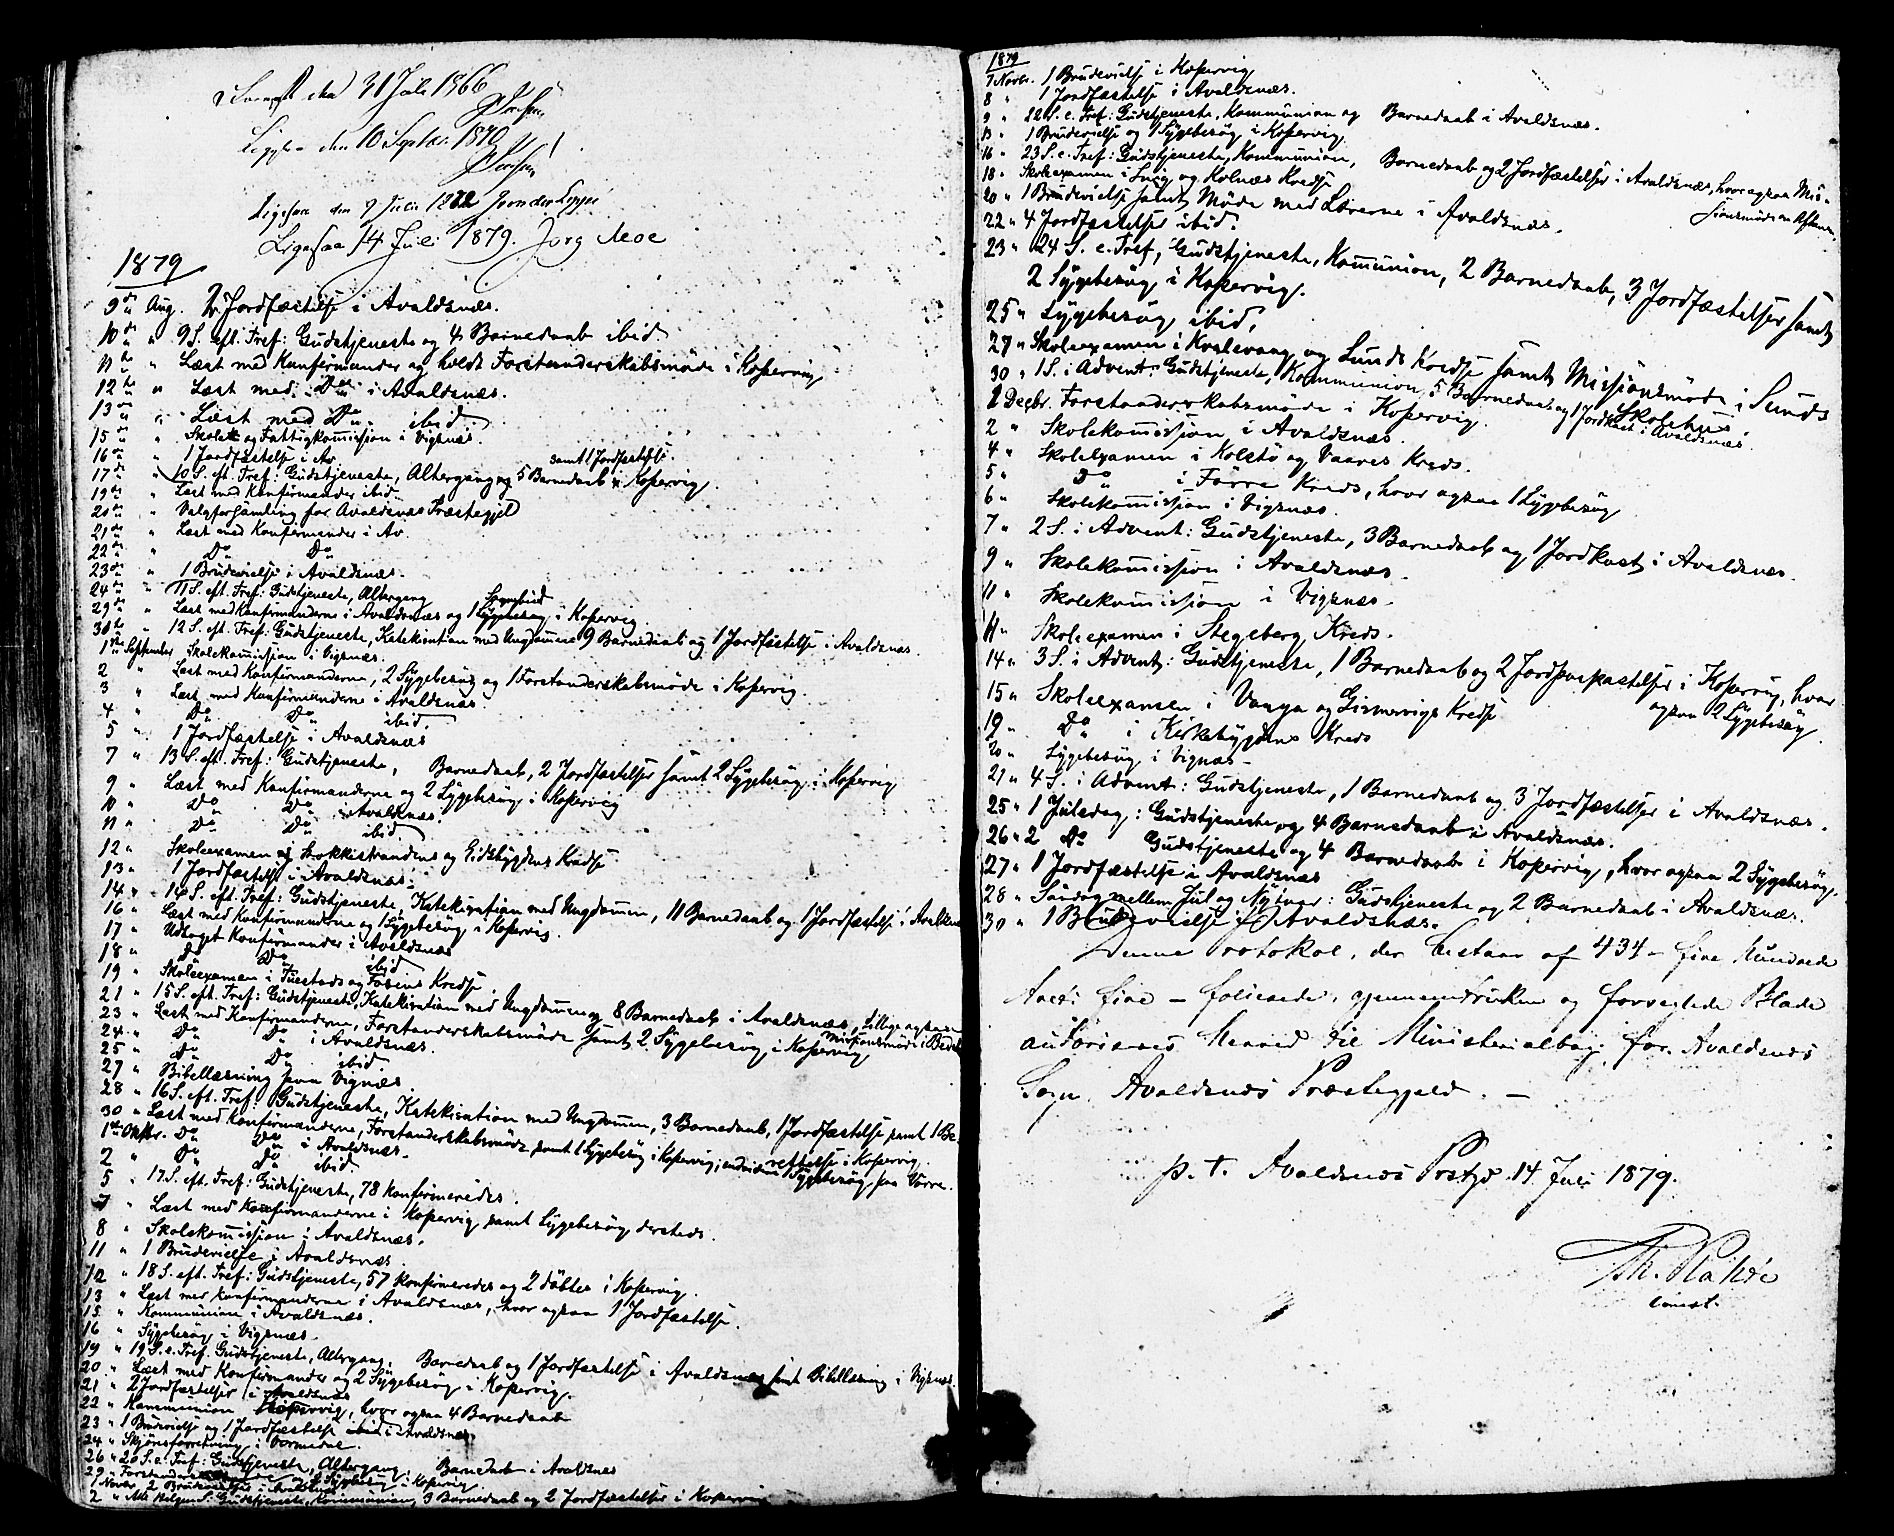 den 31 Juli 1866
Ligesaa den 10 Septbr. 1870
Ligesaa den 9 Juli 1872 von der Lippe
Ligesaa 14 Juli 1879. Jørg Moe
1879
9de Aug. 2 Jordfæstelse i Avaldsnæs.
10de " 9 S. eft. Tref: Gudstjeneste og 4 Barnedaab ibid
11te " Læst med Konfirmander og holdt Forstanderskabsmøde i Kopervig
12te " Læst med Do i Avaldsnæs.
13de " Læst med Do ibid.
15de " Skole og Fattigkommission i Vigsnæs.
16de " 1 Jordfæstelse i Av.
17de " 10 S. eft. Tref: Gudstjeneste, Altergang og 5 Barnedaab samt 1 Jordfæstelse i Kopervig
19de " Læst med Konfirmander ibid.
20de " Valgforsamling for Avaldsnæs Præstegjeld
21de " Læst med Konfirmander i Av.
22de " Do Do
23de " 1 Brudevielse i Avaldsnæs.
24de " 11 S. eft. Tref: Gudstjeneste, Altergang
29de " Læst med Konfirmanderne i Avaldsnæs og 1 Sygebesøg i Kopervig.
30te " 12 S. eft. Tref: Gudstjeneste, Katekisation med Ungdommen 9 Barnedaab og 1 Jordfæstelse i Avaldsnæs.
1ste September Skolekommission i Vigsnæs.
2 " Læst med Konfirmanderne, 2 Sygebesøg og 1 Forstanderskabsmøde i Kopervig.
3 " Læst med Konfirmanderne i Avaldsnæs.
4 " Do Do ibid
5 " 1 Jordfæstelse i Avaldsnæs
7 " 13 S. eft. Tref: Gudstjeneste, Barnedaab, 2 Jordfæstelser samt 2 Sygebesøg i Kopervig
9 " Læst med Konfirmanderne og 2 Sygebesøg i Kopervig
10 " Do Do i Avaldsnæs.
11 " Do Do ibid
12 " Skoleexamen i Stokkestrandens og Eidsbygdens Kredse
13 " 1 Jordfæstelse i Avaldsnæs.
14 " 14 S. eft. Tref: Gudstjeneste, Katekisation med Ungdommen, 11 Barnedaab og 1 Jordfæstelse i Avaldsnæs
16 " Læst med Konfirmanderne og 1 Sygebesøg i Kopervig
17 " Udtaget Konfirmander i Avaldsnæs
18 " Do Do ibid
19 " Skoleexamen i og Kredse.
21 " 15 S. eft. Tref: Gudstjeneste, Katekisation med Ungdommen og 8 Barnedaab i Avaldsnæs, tillige ogsaa
Missionsmøde i
23 " Læst med Konfirmanderne, Forstanderskabsmøde samt 2 Sygebesøg i Kopervig
24 " Do Do i Avaldsnæs.
25 " Do Do ibid.
27 " Bibellæsning paa Vignæs
28 " 16 S. eft. Tref: Gudstjeneste, Katekisation med Ungdommen, 3 Barnedaab, 1 Jordfæstelse samt 1 Be-
rettelse i Kopervig
30 " Læst med Konfirmanderne, Forstanderskabsmøde samt 1 Sygebesøg i Kopervig, endvidere 1 Sygebesøg paa Vorre.
1ste Oktbr. Do Do i Avaldsnæs.
2 " Do Do ibid
5 " 17 S. eft. Tref: Gudstjeneste, 78 konfirmeredes.
7 " Læst med Konfirmanderne i Kopervig samt Sygebesøg dersteds.
8 " Skolekommission i Avaldsnæs.
11 " 1 Brudevielse i Avaldsnæs
12 " 18 S. eft. Tref: Gudstjeneste, 57 konfirmeredes og 2 døbtes i Kopervig.
13 " Læst med Konfirmanderne i Avaldsnæs, hvor ogsaa 1 Jordfæstelse.
15 " Kommunion i Avaldsnæs.
16 " Sygebesøg i Vigsnæs.
19 " 19 S. e. Tref. Gudstjeneste, Altergang, Barnedaab og 1 Jordfæstelse i Avaldsnæs samt Bibellæsning i Vigsnæs.
20 " Læst med Konfirmander og 2 Sygebesøg i Kopervig.
21 " 2 Jordfæstelser i Avaldsnæs
22 " Kommunion Kopervig, hvor ogsaa 4 Barnedaab
23 " 1 Brudevielse og 1 Jordfæstelse i Avaldsnæs
24 " Skjønsforretning i Vormedal.
26 " 20 S. e. Tref: Gudstjeneste, Altergang, Barnedaab i Avaldsnæs
29 " og 2 Sygebesøg i Kopervig.
1 Novbr. 2 Brudevielser i Avaldsnæs
2 " Alle Helgens S. Gudstjeneste, Kommunion, 3 Barnedaab og 2 Jordfæstelser i Kopervig
1879
7 Novbr. 1 Brudevielse i Kopervig
8 " 1 Jordfæstelse i Avaldsnæs.
9 " 22 S. e. Tref: Gudstjeneste, Kommunion og Barnedaab i Avaldsnæs.
13 " 1 Brudevielse og 1 Sygebesøg i Kopervig
16 " 23 S. e. Tref: Gudstjeneste, Kommunion, Barnedaab og 2 Jordfæstelser i Avaldsnæs, hvor ogsaa Mis-
sionsmøde om Aftenen.
18 " Skoleexamen i og Kolnæs Kredse
20 " 1 Brudevielse samt Møde med Lærerne i Avaldsnæs.
22 " 4 Jordfæstelser ibid.
23 " 24 S. e. Tref, Gudstjeneste, Kommunion, 2 Barnedaab, 3 Jordfæstelser samt
2 Sygebesøg i Kopervig.
25 " Sygebesøg ibid.
27 " Skoleexamen i Kvalevaag og Sunds Kredse samt Missionsmøde i Sunds
Skolehus
30 " 1 S. i Advent: Gudstjeneste, Kommunion, 5 Barnedaab og 1 Jordkast i Avaldsnæs.
1 Decbr. Forstanderskabsmøde i Kopervig.
2 " Skolekommission i Avaldsnæs.
4 " Skoleexamen i Kolstø og Vaares Kreds.
5 " Do i Førre Kreds, hvor ogsaa 1 Sygebesøg
6 " Skolekommission i Vigsnæs.
7 " 2 S. i Advent: Gudstjeneste, 3 Barnedaab og 1 Jordkast i Avaldsnæs.
9 " Skolekommission i Avaldsnæs.
11 " Skolekommission i Vigsnæs.
11 " Skoleexamen i Stegeberg Kreds.
14 " 3 S. i Advent: Gudstjeneste, 1 Barnedaab og 2 Jordpaakastelser i Kopervig, hvor
ogsaa 2 Sygebesøg
15 " Skoleexamen i og Kredse
19 " Do i Kirkebygdens Kreds
20 " Sygebesøg i Vignæs
21 " 4 S. i Advent: Gudstjeneste, 1 Barnedaab og 3 Jordfæstelser i Avaldsnæs.
25 " 1 Juledag: Gudstjeneste og 4 Barnedaab i Avaldsnæs.
26 " 2 Do Gudstjeneste og 4 Barnedaab i Kopervig, hvor ogsaa 2 Sygebesøg.
27 " 1 Jordfæstelse i Avaldsnæs
28 " Søndag mellem Jul og Nytaar: Gudstjeneste og 2 Barnedaab i Avaldsnæs.
30 " 1 Brudevielse i Avaldsnæs.
Denne Protokol, der bestaar af 434 - fire Hundrede
fire - folierede, gjennemdragne og forseglede Blade
autoriseres herved til Ministerialbog for Avaldsnes
Sogn, Avaldsnes Præstegjeld. -
p. t. Avaldsnes Prstgd. 14 Juli 1879.
const.